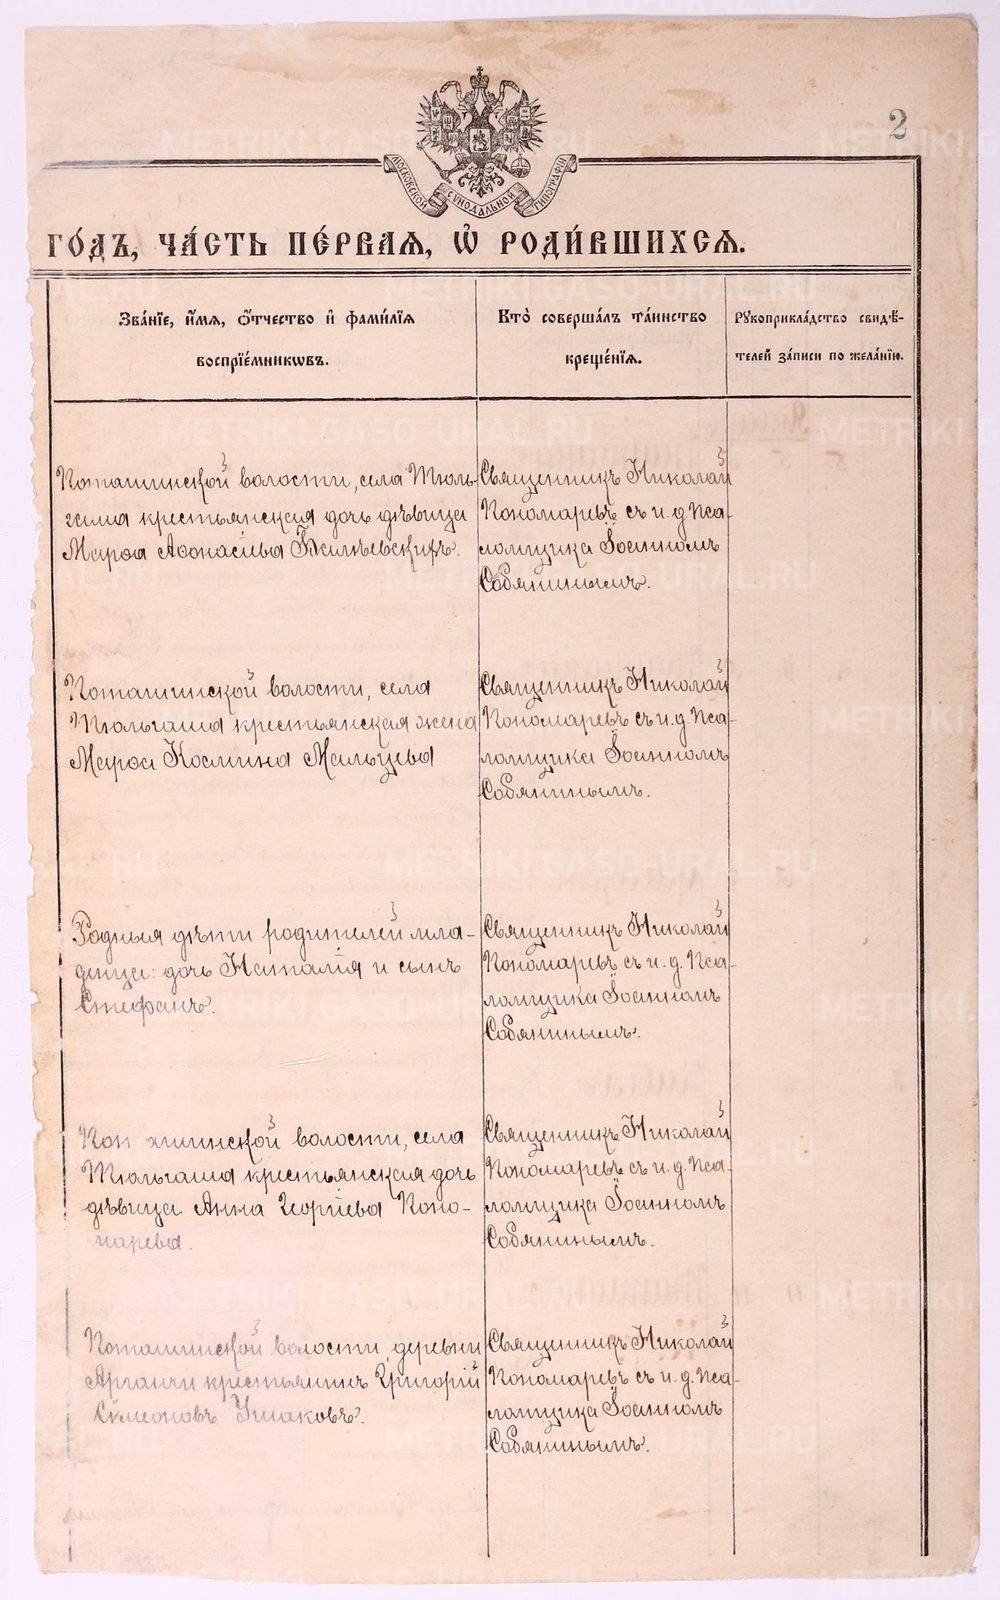 2
МОСКОВСКОЙ СѴНОДАЛЬНОЙ ТИПОГРАФІИ
ГО́ДЪ, ЧА́СТЬ ПЕ́РВАЯ, Ѽ РОДИ́ВШИХСЯ.
Зва́нїе, и҆́мѧ, ѻ҆́тчество и҆ фами́лїѧ
воспрїе́мникѡвъ.
Кто̀ соверша́лъ та́инство
креще́нїѧ.
Рꙋкоприкла́дство свидѣ́-
телей за́писи по жела́нїю.
Поташинской волости, села Тюль-
гаша крестьянская дочь дѣвица
Марѳа Аѳонасіева
Священникъ Николай
Пономаревъ съ и. д. Пса-
ломщика Іоанномъ
Собянинымъ.
Поташинской волости, села
Тюльгаша крестьянская жена
Марѳа Космина Мальцева
Священникъ Николай
Пономаревъ съ и. д. Пса-
ломщика Іоанномъ
Собянинымъ.
Родныя дѣти родителей мла-
денца: дочь Наталія и сынъ
Стефанъ.
Священникъ Николай
Пономаревъ съ и. д. Пса-
ломщика Іоанномъ
Собянинымъ.
волости, села
Тюльгаша крестьянская дочь
дѣвица Анна Георгіева Поно-
марева.
Священникъ Николай
Пономаревъ съ и. д. Пса-
ломщика Іоанномъ
Собянинымъ.
Поташинской волости, деревни
Арганчи крестьянинъ Григорій
Сѵмеоновъ Ушаковъ.
Священникъ Николай
Пономаревъ съ и. д. Пса-
ломщика Іоанномъ
Собянинымъ.
METRIKI.GASO-URAL.RU